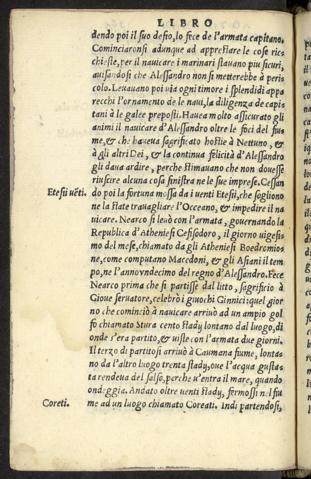 LIBRO
dendo poi il suo desio, lo fece de l'armata capitano.
Cominciaronsi adunque ad apprestare le cose rich
chieste, per il nauicare i marinari stauano piu sicuri,
auisandosi che Alessandro non si metterebbe à peris
colo. Leuauano poi via ogni timore i splendidi appa
recchi l'ornamento de le naui, la diligenza de capis
tani à le galee preposti. Haueua molto assicurato gli
animi il nauicare d'Alessandro oltre le foci del fius
me, & che haueua sagrificato hostie à Nettuno, &
à gli altri Dei, & la continua felicità d'Alessandro
gli daua ardire, perche stimauano che non douesse
riuscire alcuna cosa sinistra ne le sue imprese. Cessan
Etesii uẽti. do poi la fortuna mossa da i uenti Etesii, che sogliono
ne la state trauagliare l'Occeano, & impedire il na
uicare. Nearco si leuò con l'armata, gouernando la
Republica d'Atheniesi Cefisodoro, il giorno uigesi
mo del mese, chiamato da gli Atheniesi Boedromios
ne, come computano Macedoni, & gli Asiani il tem
po, ne l'anno vndecimo del regno d'Alessandro. Fece
Nearco prima che si partisse dal litto, sagrificio à
Gioue seruatore, celebrò i giuochi Ginnici: quel gior
no che cominciò à nauicare arriuò ad un ampio gol
fo chiamato Stura cento stadij lontano dal luogo, di
onde s'era partito, & uiste con l'armata due giorni.
Il terzo di partitosi arriuò à Caumana fiume, lonta
no da l'altro luogo trenta stadij, oue l'acqua gusta
ta rendeua del salso, perche u'entra il mare, quando
ondeggia. Andato oltre uenti stadij, fermossi nel fiu
Coreti. me ad un luogo chiamato Coreati. Indi partendosi,